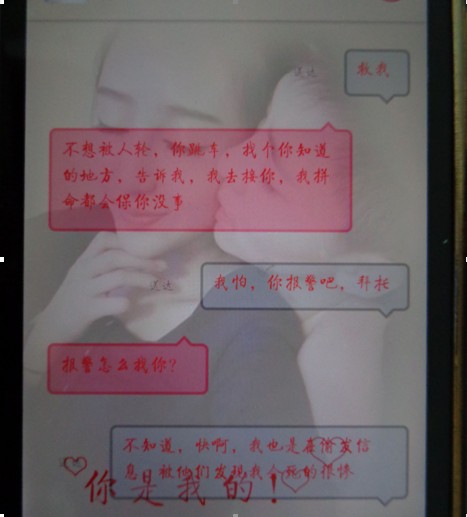 救我
不想被人轮，你跳车，找个你知道
的地方，告诉我，我去接你，我拼
命都会保你没事
我怕，你报警吧，拜托
报警怎么找你？
不知道，快啊，我也是在偷发信
息，被他们发现我会死的很惨
你是我的！